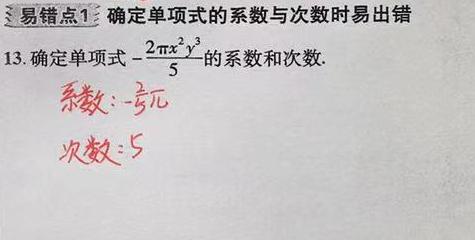 易错点1 确定单项式的系数与次数时易出错
13.确定单项式 -\frac{2πx²y³}{5} 的系数和次数.
系数:-\frac{2}{5}π
次数:5